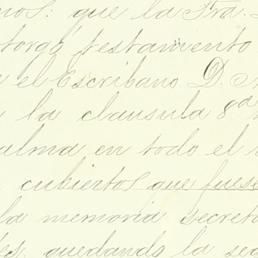 que la Sra.
otorgó testamento
el Escribano D.
la clausula 8ª
alma en todo el
cubiertos que fuese
la memoria secreta
quedando la